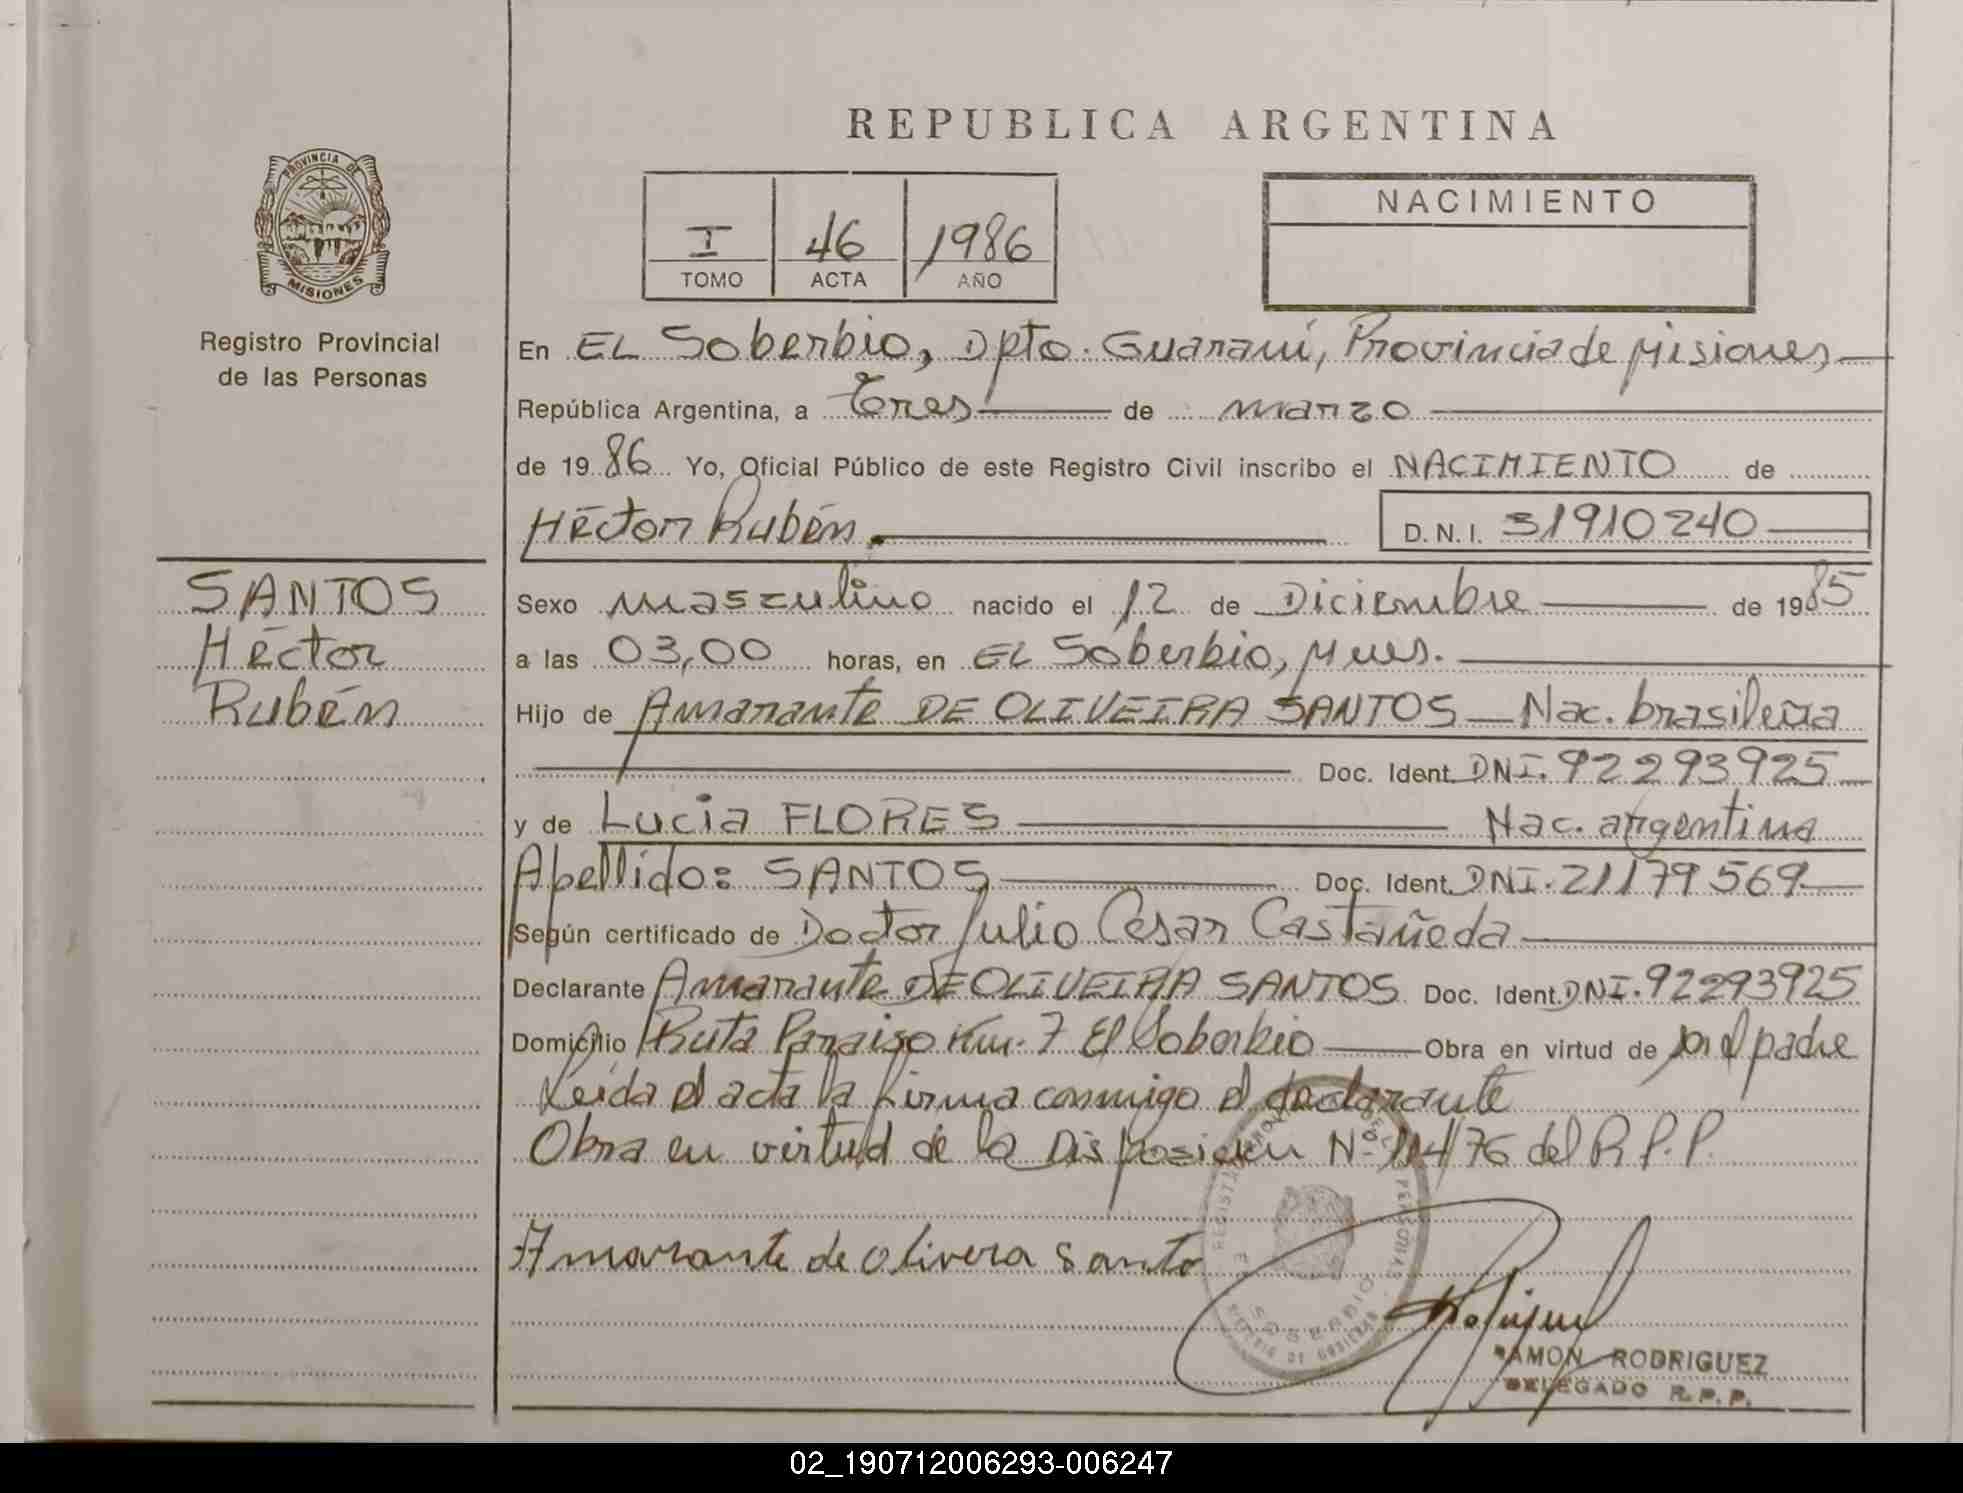 REPUBLICA ARGENTINA
PROVINCIA DE
MISIONES
Registro Provincial
de las Personas
I 46 1986
TOMO ACTA AÑO
NACIMIENTO
En EL Soberbio, Dpto. Guaraní, Provincia de Misiones,
República Argentina, a Tres de marzo
de 1986 Yo, Oficial Público de este Registro Civil inscribo el NACIMIENTO de
Héctor Rubén. D.N.I. 31910240
SANTOS
Héctor
Rubén
Sexo masculino nacido el 12 de Diciembre de 1985
a las 03,00 horas, en EL Soberbio, Mnes.
Hijo de Amarante DE OLIVEIRA SANTOS Nac. brasileña
Doc. Ident. DNI. 92293925
y de Lucia FLORES Nac. argentina
Apellido: SANTOS Doc. Ident. DNI. 21179569
Según certificado de Doctor Julio Cesar Castañeda
Declarante Amarante DE OLIVEIRA SANTOS Doc. Ident. DNI. 92293925
Domicilio Ruta Paraiso Km. 7 El Soberbio Obra en virtud de ser el padre
Leida el acta la firma conmigo el declarante
Obra en virtud de la Disposicion Nº 104/76 del R.P.P.
Amarante de olivera santo
EL SOBERBIO
RAMON RODRIGUEZ
DELEGADO R.P.P.
02_190712006293-006247